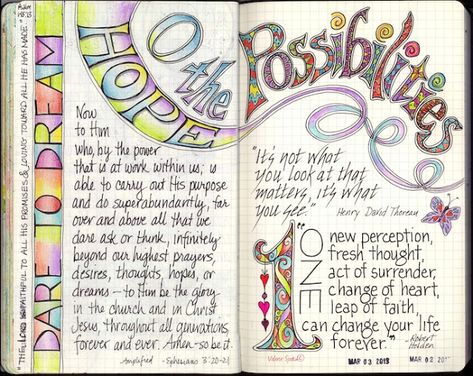 Psalm
145:13
"THE LORD IS FAITHFUL TO ALL HIS PROMISES & LOVING TOWARD ALL HE HAS MADE"
DARE TO DREAM
HOPE
O the
Possibilities
Now
to Him
who, by the power
that is at work within us, is
able to carry out His purpose
and do superabundantly, far
over and above all that we
dare ask or think, infinitely
beyond our highest prayers,
desires, thoughts, hopes, or
dreams – to Him be the glory
in the church and in Christ
Jesus, throughout all generations,
forever and ever. Amen – so be it.
Amplified - Ephesians 3:20-21
"It's not what
you look at that
matters, it's what
you see."
Henry David Thoreau
"1 ONE
new perception,
fresh thought,
act of surrender,
change of heart,
leap of faith,
can change your life
forever."
- Robert
Holden
Valerie Sjodin ©
MAR 03 2013
MAR 02